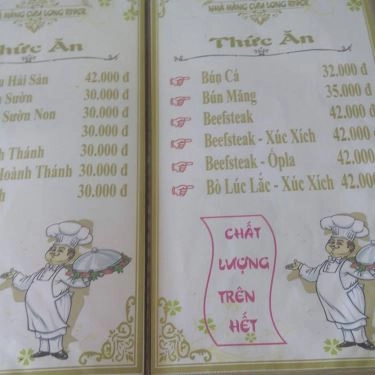 NHÀ HÀNG CỬU LONG RIVER
Thức Ăn
Hải Sản 42.000 đ
Sườn 30.000 đ
Sườn Non 30.000 đ
30.000 đ
Thánh 30.000 đ
Hoành Thánh 30.000 đ
30.000 đ
NHÀ HÀNG CỬU LONG RIVER
Thức Ăn
Bún Cá 32.000 đ
Bún Măng 35.000 đ
Beefsteak 42.000 đ
Beefsteak - Xúc Xích 42.000 đ
Beefsteak - Ốpla 42.000 đ
Bò Lúc Lắc - Xúc Xích 42.000
CHẤT
LƯỢNG
TRÊN
HẾT